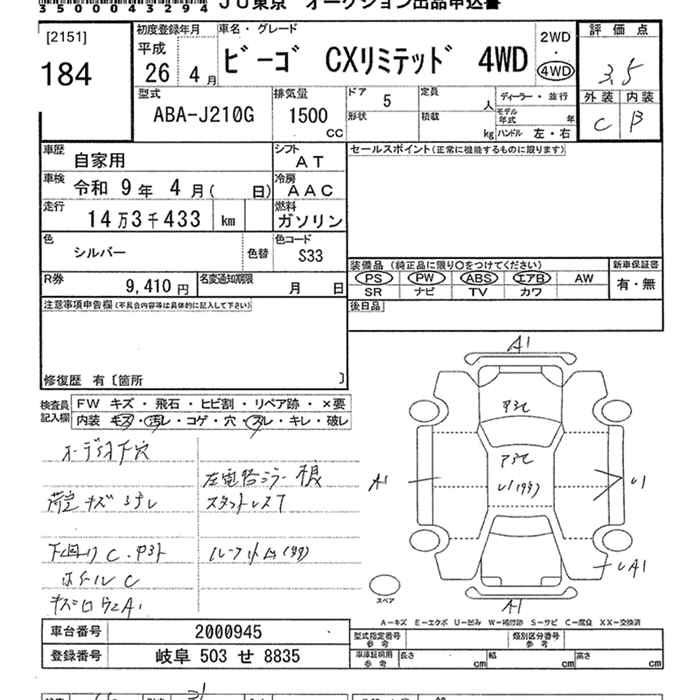 35004 3294 JU東京 オークション出品申込書
[2151]
184
初度登録年月
平成 26年 4月
車名・グレード
ビーゴ CXリミテッド 4WD
2WD
・
4WD
評価点
3.5
外装 内装
C B
型式
ABA-J210G
排気量
1500 CC
ドア 5
形状
定員 人
積載 kg
ディーラー・並行
モデル年式 年
ハンドル 左・右
車歴 自家用
シフト AT
セールスポイント(正常に機能するものに限ります)
車検 令和 9年 4月( 日)
冷房 AAC
走行 14万3千433 km
燃料 ガソリン
色 シルバー
色替
色コード S33
装備品 (純正品に限り○をつけてください)
新車保証書
PS PW ABS エアB AW
有・無
SR ナビ TV カワ
R券 9,410円
名変通知期限 月 日
後日品
注意事項申告欄(不具合内容等は具体的に記入して下さい)
修復歴 有〔箇所 〕
検査員記入欄
FW キズ・飛石・ヒビ割・リペア跡・×要
内装 キズ・汚レ・コゲ・穴・スレ・キレ・破レ
オーディオ下穴
左電格ミラー 根
荷室キズ スレ
スタットレス7
下回り C.
ホイール C
A1
A1
A1
U1
UA1
A1
スペア
A-キズ E-エクボ U-凹み W-補修跡 S-サビ C-腐食 XX-交換済
車台番号 2000945
型式指定番号 参考
類別区分番号 参考
登録番号 岐阜 503 せ 8835
車庫証明用 参考 長さ cm 幅 cm 高さ cm